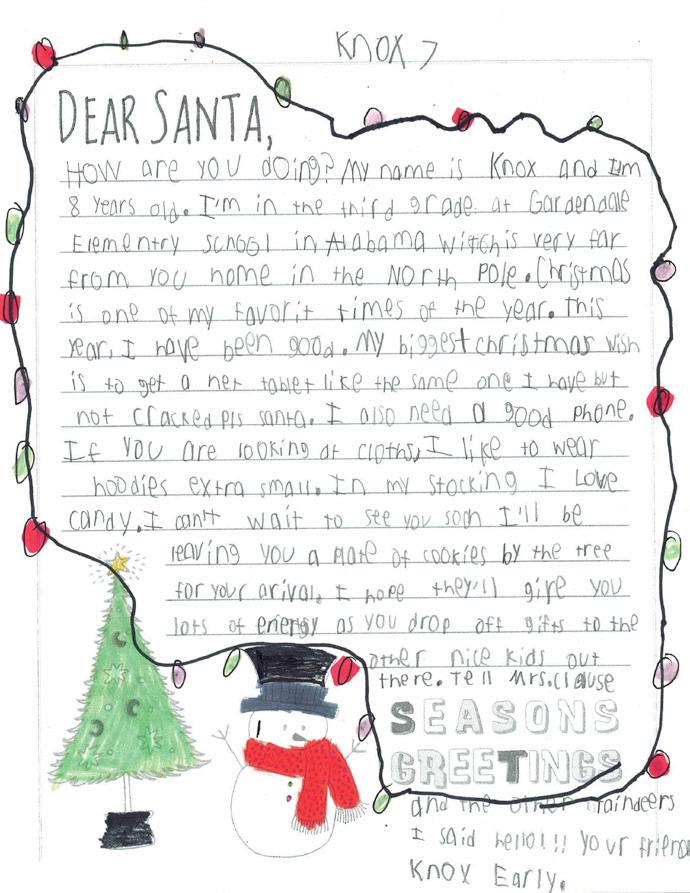 Knox 7
DEAR SANTA,
HOW are you doing? My name is Knox and I'm
8 years old. I'm in the third grade at Gardendale
Elementry school in Alabama witch is very far
from you home in the North Pole. Christmas
is one of my favorit times of the year. This
year, I have been good. My biggest christmas wish
is to get a net tablet like the same one I have but
not cracked pls santa. I also need a good phone.
If you are looking at cloths, I like to wear
hoodies extra small. In my stocking I Love
candy. I can't wait to see you soon I'll be
leaving you a plate of cookies by the tree
for your arival. I hope they'll give you
lots of energy as you drop off gifts to the
other nice kids out
there. Tell Mrs. clause
SEASONS
GREETINGS
and the other raindeers
I said hello!!! Your friend
Knox Early.